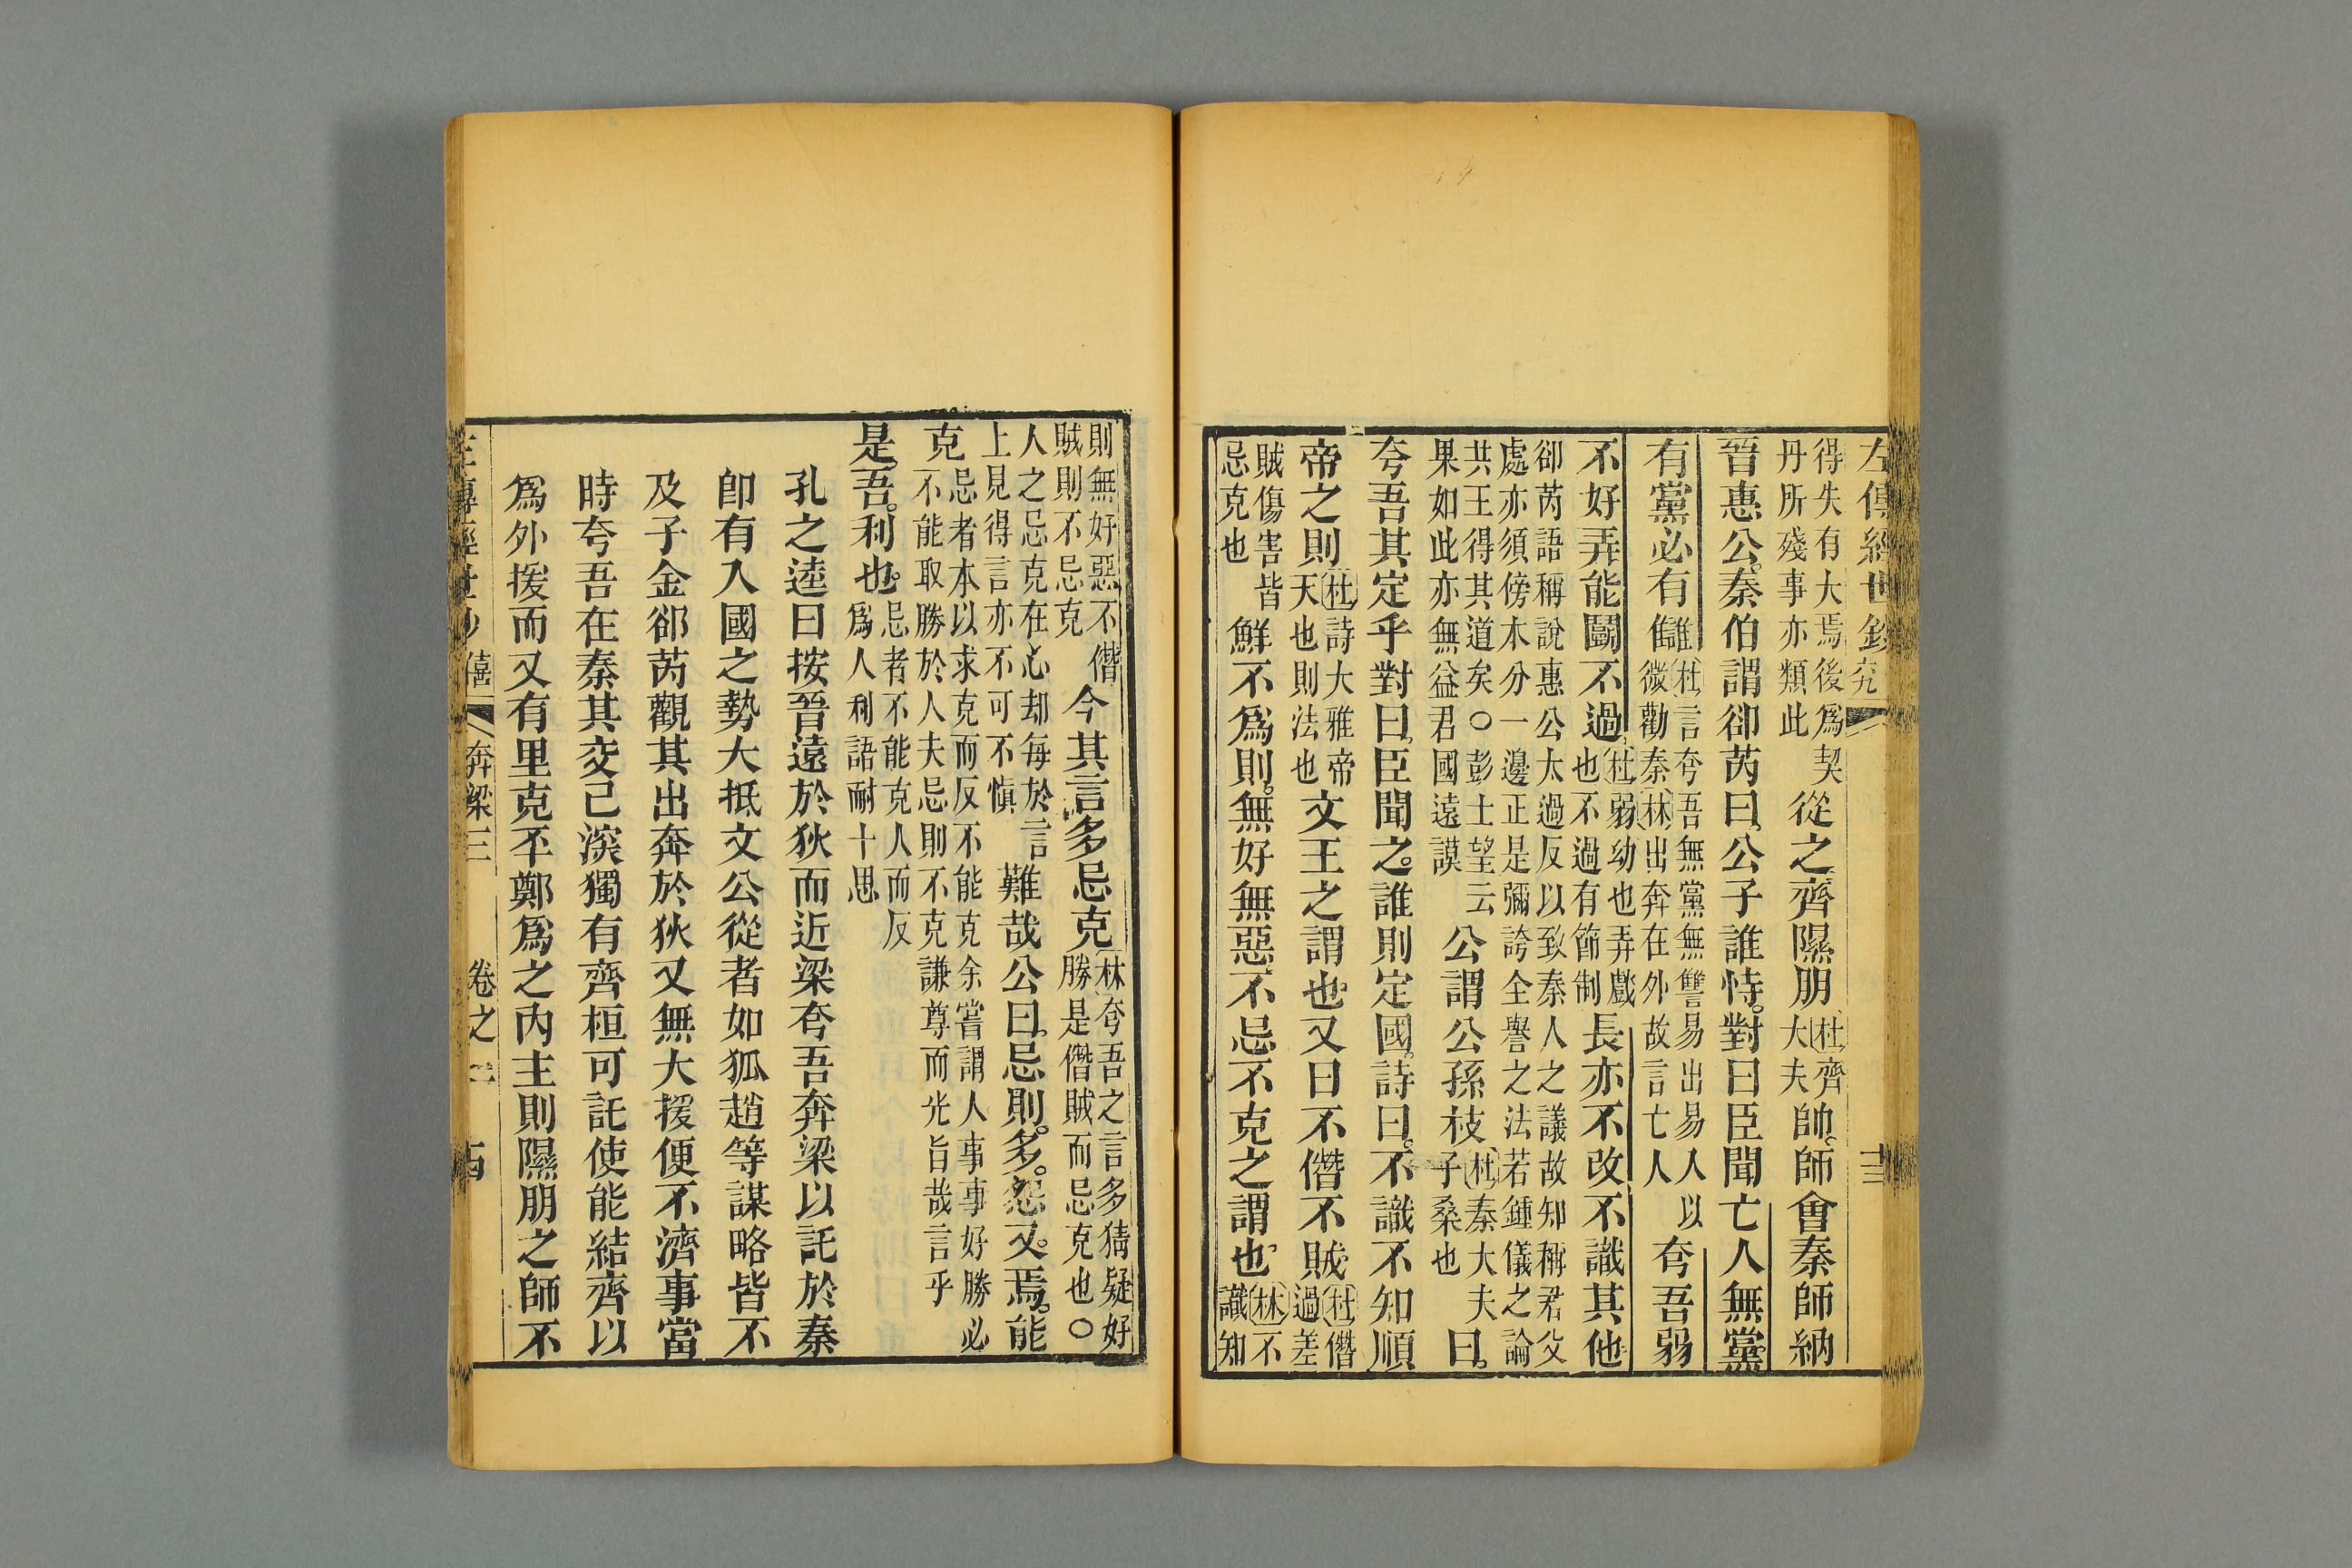 左傳經世鈔
得失有大焉後爲契
丹所殘事亦類此
從之齊隰朋
杜齊
大夫
帥師會秦師納
晉惠公秦伯謂卻芮曰公子誰恃對曰臣聞亡人無黨
有黨必有讎
杜言夸吾無黨無讐易出易入以
微勸秦林出奔在外故言亡人
夸吾弱
不好弄能鬭不過
杜弱幼也弄戲
也不過有節制
長亦不改不識其他
卻芮語稱說惠公太過反以致秦人之議故知稱君父
處亦須傍本分一邊正是彌誇全譽之法若鍾儀之論
共王得其道矣〇彭士望云
果如此亦無益君國遠謨
公謂公孫枝
杜秦大夫
子桑也
曰
夸吾其定乎對曰臣聞之誰則定國詩曰不識不知順
帝之則
杜詩大雅帝
天也則法也
文王之謂也又曰不僭不賊
杜僭
過差
賊傷害皆
忌克也
鮮不爲則無好無惡不忌不克之謂也
林不
識知
則無好惡不僭
賊則不忌克
今其言多忌克
林夸吾之言多猜疑好
勝是僭賊而忌克也〇
人之忌克在心却每於言
上見得言亦不可不愼
難哉公曰忌則多怨又焉能
克
忌者本以求克而反不能克余嘗謂人事事好勝必
不能取勝於人夫忌則不克謙尊而光旨哉言乎
是吾利也
忌者不能克人而反
爲人利語耐十思
孔之逵曰按晉遠於狄而近梁夸吾奔梁以託於秦
卽有入國之勢大抵文公從者如狐趙等謀略皆不
及子金卻芮觀其出奔於狄又無大援便不濟事當
時夸吾在秦其交己深獨有齊桓可託使能結齊以
爲外援而又有里克丕鄭爲之內主則隰朋之師不
左傳經世鈔 僖 奔梁三 卷之